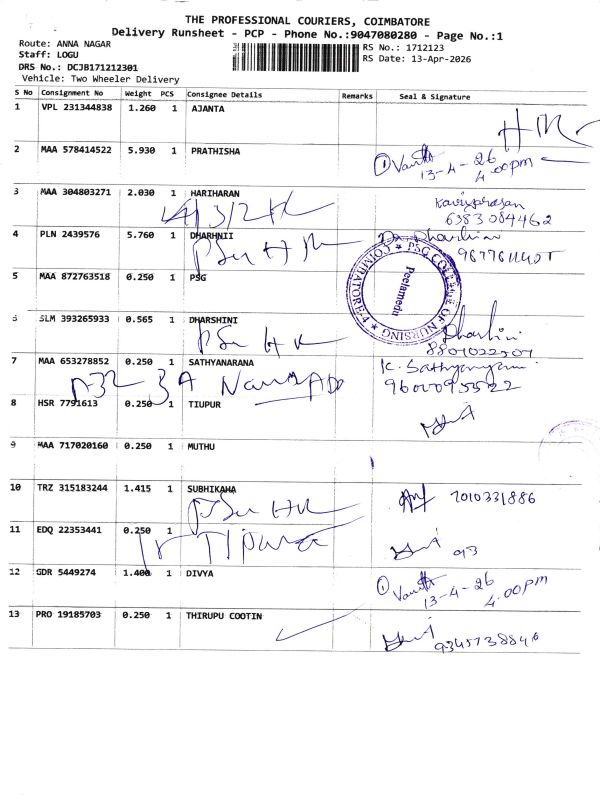 THE PROFESSIONAL COURIERS, COIMBATORE
Delivery Runsheet - PCP - Phone No.:9047080280 - Page No.:1
Route: ANNA NAGAR
Staff: LOGU
DRS No.: DCJB171212301
Vehicle: Two Wheeler Delivery
RS No.: 1712123
RS Date: 13-Apr-2026
S No Consignment No Weight PCS Consignee Details Remarks Seal & Signature
1 VPL 231344838 1.260 1 AJANTA
2 MAA 578414522 5.930 1 PRATHISHA
13-4-26
4.00pm
3 MAA 304803271 2.030 1 HARIHARAN
6383084462
4 PLN 2439576 5.760 1 DHARHNII
PSG COLLEGE OF NURSING
Peelamedu
COIMBATORE
5 MAA 872763518 0.250 1 PSG
6 SLM 393265933 0.565 1 DHARSHINI
Dharshini
7 MAA 653278852 0.250 1 SATHYANARANA
9600095522
8 HSR 7791613 0.250 1 TIUPUR
9 MAA 717020160 0.250 1 MUTHU
10 TRZ 315183244 1.415 1 SUBHIKAHA
7010331886
11 EDQ 22353441 0.250 1
12 GDR 5449274 1.400 1 DIVYA
13-4-26
4.00pm
13 PRO 19185703 0.250 1 THIRUPU COOTIN